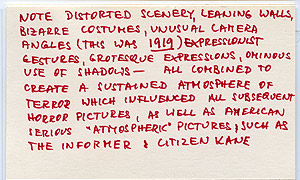 NOTE DISTORTED SCENERY, LEANING WALLS,
BIZARRE COSTUMES, UNUSUAL CAMERA
ANGLES (THIS WAS 1919) EXPRESSIONIST
GESTURES, GROTESQUE EXPRESSIONS, OMINOUS
USE OF SHADOWS — ALL COMBINED TO
CREATE A SUSTAINED ATMOSPHERE OF
TERROR WHICH INFLUENCED ALL SUBSEQUENT
HORROR PICTURES, AS WELL AS AMERICAN
SERIOUS "ATMOSPHERIC" PICTURES, SUCH AS
THE INFORMER & CITIZEN KANE